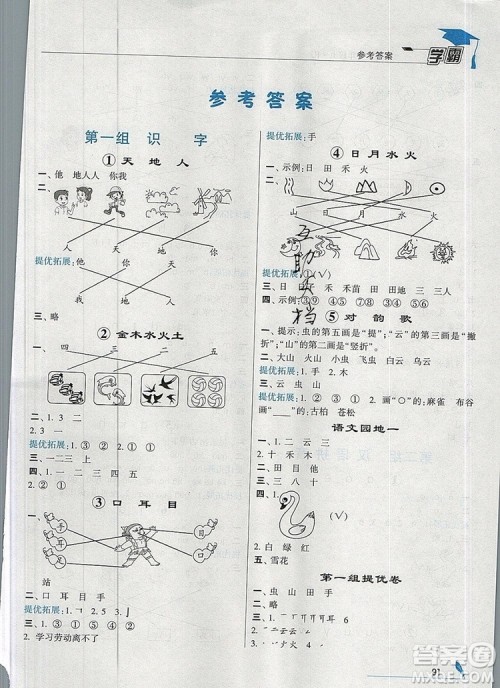 参考答案
学霸
参考答案
第一组 识 字
①天 地 人
一、他 地人人 你我
二、
人 天 地 你 天
提优拓展:他 你 你
地 天
②金木水火土
一、四 三 五 二
二、1. 3 二
2. ③ ① ②
提优拓展:1. ③ ① ② ④
三、一二三 上
四、1. 一 二 三 四 五
2. ①②
③口 耳 目
一、
手 足 口 耳 目
二、
站
三、口 耳 目 手
提优拓展:
四、1. ③①②
2. 学习劳动离不了
提优拓展:手
④日月水火
一、示例:日 田 禾 火
二、
山 月 水 日 火
提优拓展:①(√)
三、日 田 禾子 禾苗 田田 地 三 三人
四、示例:③⑨ ④⑦ ⑤⑧ ①⑥
⑤对 韵 歌
一、提示:虫的第五画是“提”;“云”的第三画是“撇
折”;“山”的第二画是“竖折”。
二、大山 火山 花鸟 虫鸟 白云 乌云
提优拓展:①
三、云 虫 山
四、1. ②④③① 2. 画“○”的:麻雀 布谷
画“﹏﹏”的:古柏 苍松
语文园地一
一、1. 二 云 三
2. 十 禾 木
二、田 目 目
三、②①④③
四、1.
(√)
2. 白 绿 红
五、雪花
第一组提优卷
一、略
二、
三、1.
2. ③②④①
91
互助文档
作业帮答案